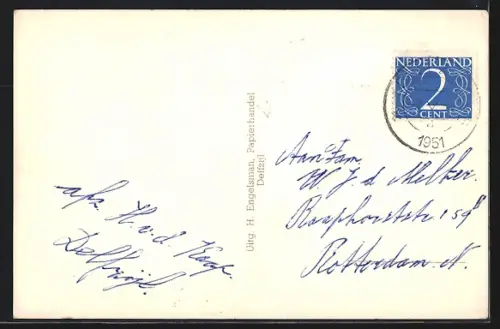 NEDERLAND
2
CENT
1951
Uitg. H. Engelsman, Papierhandel
Delfzijl
Aan Fam.
W. J. d. Melker.
Raaphorststr 159
Rotterdam N.
afz. H. v. d.
Delfzijl.